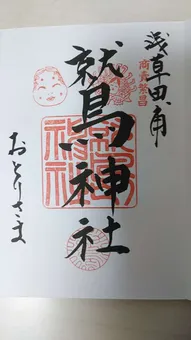 浅草田甫
商賣繁昌
鷲神社
おとりさま